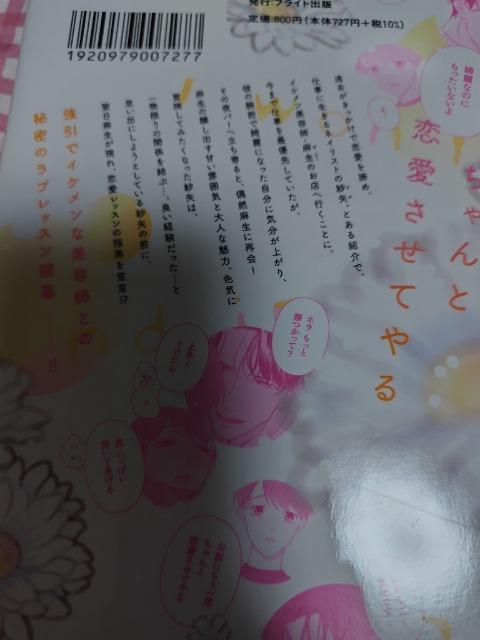 発行:ブライト出版
定価:800円(本体727円+税10%)
1920979007277
綺麗なのに
もったいないよ
ちゃんと
恋愛させてやる
過去がきっかけで恋愛を諦め、
仕事に生きるネイリストの紗矢。とある紹介で、
イケメン美容師・麻生のお店へ行くことに。
今まで仕事を最優先していたが、
彼の施術で綺麗になった自分に気分が上がり、
その夜バーへ立ち寄ると、偶然麻生に再会!
麻生の醸し出す甘い雰囲気と大人な魅力、色気に
冒険してみたくなった紗矢は、
一晩限りの関係を結ぶ…。良い経験だった…と
思い出にしようとしている紗矢の前に、
翌日麻生が現れ、恋愛レッスンの指南を宣言!?
強引でイケメンな美容師との
秘密のラブレッスン開幕――!!
ホラ もっと
腰つかって?
上手く
イけたら
いっぱい
突いてあげる
お前にもう一度
ちゃんと
恋愛させてやる